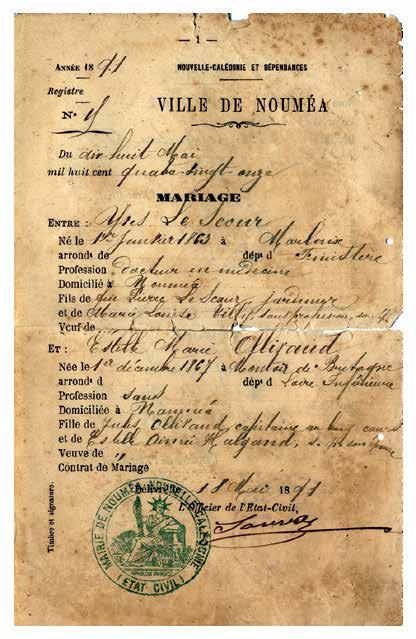 — 1 —
ANNÉE 1891
NOUVELLE-CALÉDONIE ET DÉPENDANCES
Registre
N°
VILLE DE NOUMÉA
Du dix huit Mai
mil huit cent quatre vingt onze
MARIAGE
ENTRE : Yves Le Scour
Né le 1er Janvier 1863 à Morlaix
arrond^t de dép^t d Finistère
Profession docteur en médecine
Domicilié à Nouméa
Fils de feu Pierre Le Scour, jardinier
et de Marie Louise sans profession, sa
Veuf de
ET : Estelle Marie Ollivaud
Née le 1er décembre 1867 à Montoir de Bretagne
arrond^t d dép^t d Loire Inférieure
Profession sans
Domiciliée à Nouméa
Fille de Jules Ollivaud, capitaine au long cours
et de Estelle Aimée Halgand, s. pr. son épouse
Veuve de "
Contrat de Mariage
Délivré 18 Mai 1891
L'Officier de l'Etat-Civil,
Timbre et signature.
MAIRIE DE NOUMÉA NOUVELLE-CALÉDONIE
(ETAT CIVIL)